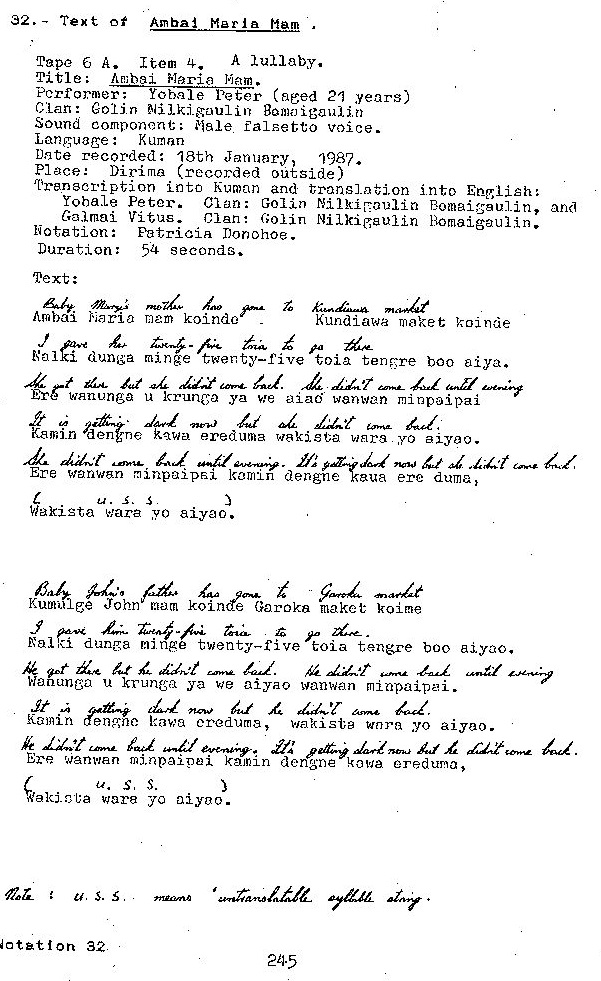 32.- Text of Ambai Maria Mam .
Tape 6 A. Item 4. A lullaby.
Title: Ambai Maria Mam.
Performer: Yobale Peter (aged 21 years)
Clan: Golin Nilkigaulin Bomaigaulin
Sound component: Male falsetto voice.
Language: Kuman
Date recorded: 18th January, 1987.
Place: Dirima (recorded outside)
Transcription into Kuman and translation into English:
Yobale Peter. Clan: Golin Nilkigaulin Bomaigaulin, and
Galmai Vitus. Clan: Golin Nilkigaulin Bomaigaulin.
Notation: Patricia Donohoe.
Duration: 54 seconds.
Text:
Baby Mary's mother has gone to Kundiawa market
Ambai Maria mam koinde . Kundiawa maket koinde
I gave her twenty-five toia to go there
Nalki dunga minge twenty-five toia tengre boo aiya.
She got there but she didn't come back. She didn't come back until evening
Ere wanunga u krunga ya we aiao wanwan minpaipai
It is getting dark now but she didn't come back.
Kamin dengne kawa ereduma wakista wara yo aiyao.
She didn't come back until evening. It's getting dark now but she didn't come back.
Ere wanwan minpaipai kamin dengne kaua ere duma,
( u. s. s. )
Wakista wara yo aiyao.
Baby John's father has gone to Garoka market
Kumulge John mam koinde Garoka maket koime
I gave him twenty-five toia to go there.
Nalki dunga minge twenty-five toia tengre boo aiyao.
He got there but he didn't come back. He didn't come back until evening
Wanunga u krunga ya we aiyao wanwan minpaipai.
It is getting dark now but he didn't come back.
Kamin dengne kawa ereduma, wakista wara yo aiyao.
He didn't come back until evening. It's getting dark now but he didn't come back.
Ere wanwan minpaipai kamin dengne kowa ereduma,
( u. s. s. )
Wakista wara yo aiyao.
Note : u. s. s. means 'untranslatable syllable string.
Notation 32
245